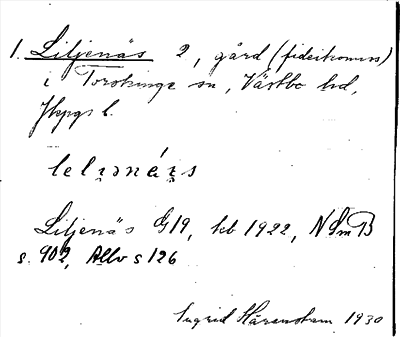 1. Liljenäs 2, gård (fideikomiss)
i Torskinge sn, Västbo hd,
Jkpgs l.
lelɟənés
Liljenäs G19, kb 1922, NSmB
s. 902, Allv s 126
Ingrid Härenstam 1930